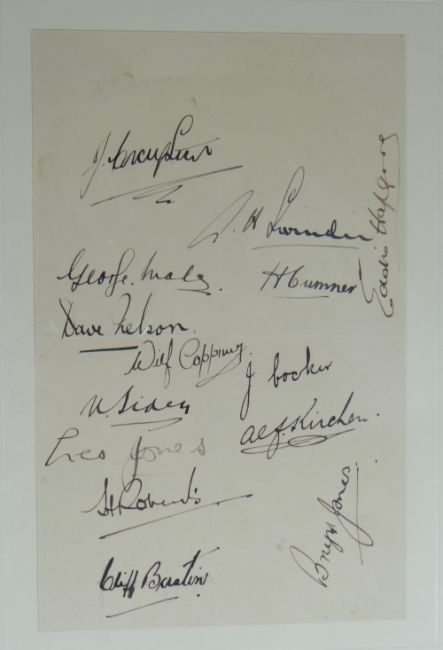 J. Crayston
Eddie Hapgood
G. H. Swindin
George Male.
H Cumner
Dave Nelson.
Wilf Copping.
N. Sidey
J
Alf. Kirchen.
Leo Jones
H Roberts
Bryn Jones.
Cliff Bastin